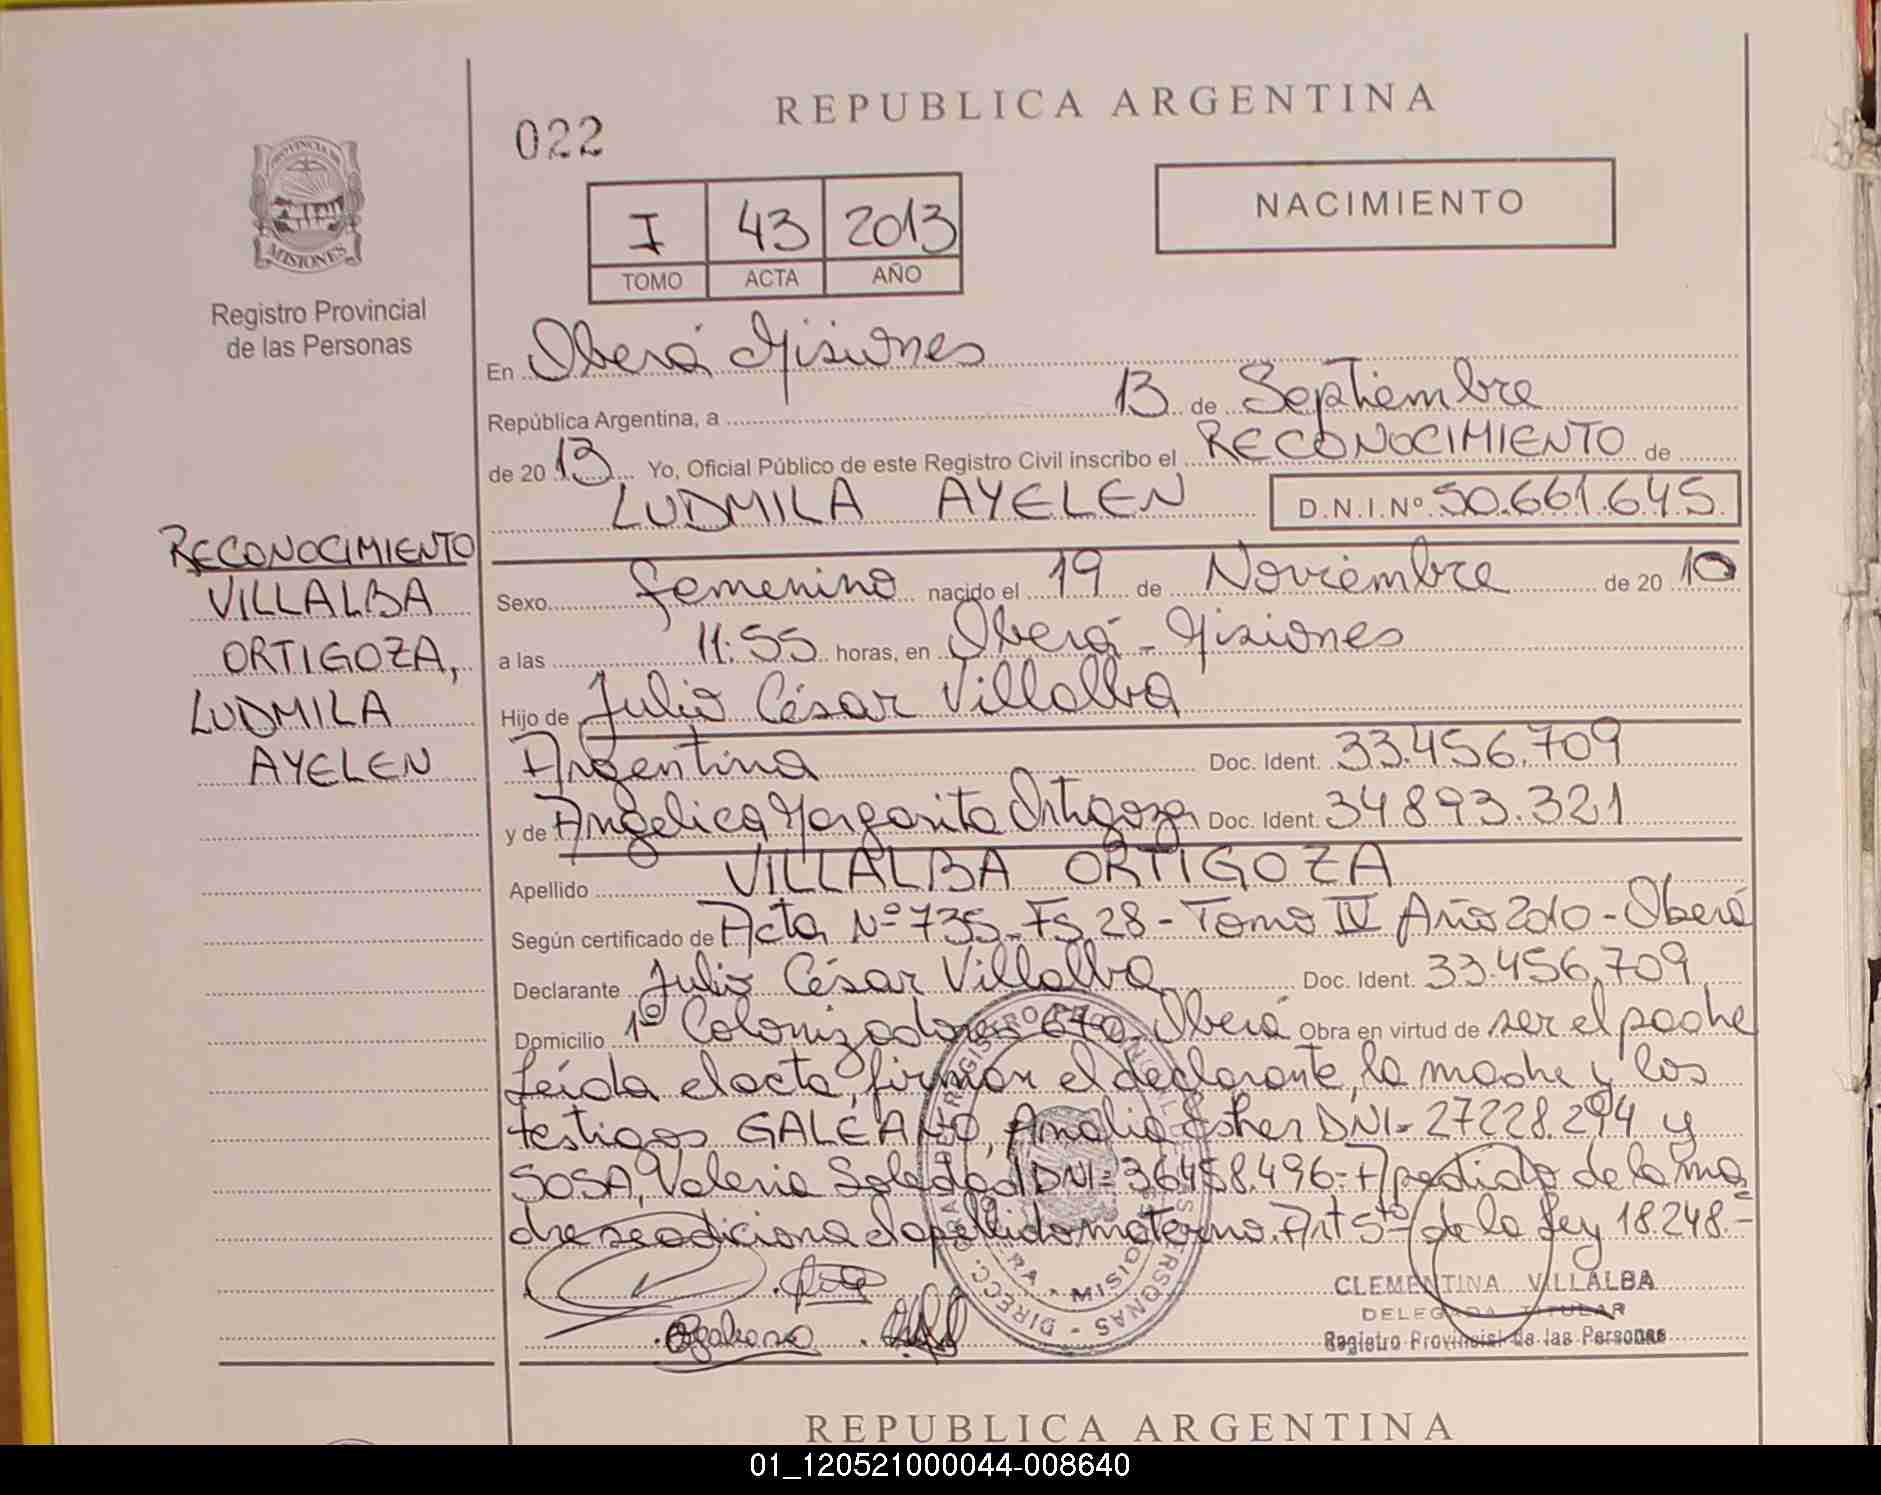 REPUBLICA ARGENTINA
022
NACIMIENTO
I 43 2013
TOMO ACTA AÑO
PROVINCIA DE
MISIONES
Registro Provincial
de las Personas
En Oberá Misiones
República Argentina, a 13 de Septiembre
de 20 13 Yo, Oficial Público de este Registro Civil inscribo el RECONOCIMIENTO de
LUDMILA AYELEN D.N.I.Nº 50.661.645
RECONOCIMIENTO
VILLALBA
ORTIGOZA,
LUDMILA
AYELEN
Sexo femenino nacido el 19 de Noviembre de 20 10
a las 11:55 horas, en Oberá - Misiones
Hijo de Julio César Villalba
Argentina Doc. Ident. 33.456.709
y de Angelica Margarita Ortigoza Doc. Ident. 34.893.321
Apellido VILLALBA ORTIGOZA
Según certificado de Acta Nº 735 - Fs 28 - Tomo IV Año 2010 - Oberá
Declarante Julio César Villalba Doc. Ident. 33.456.709
Domicilio 1º Colonizadores 670 - Oberá Obra en virtud de ser el padre
Leída el acta, firman el declarante, la madre y los
testigos GALEANO, Amalia Esher DNI = 27.228.294 y
SOSA, Valeria Soledad DNI = 36.458.496 - A pedido de la ma
dre se adiciona el apellido materno. Art 5to de la Ley 18.248.-
CLEMENTINA VILLALBA
DELEGADA TITULAR
Registro Provincial de las Personas
REPUBLICA ARGENTINA
01_120521000044-008640